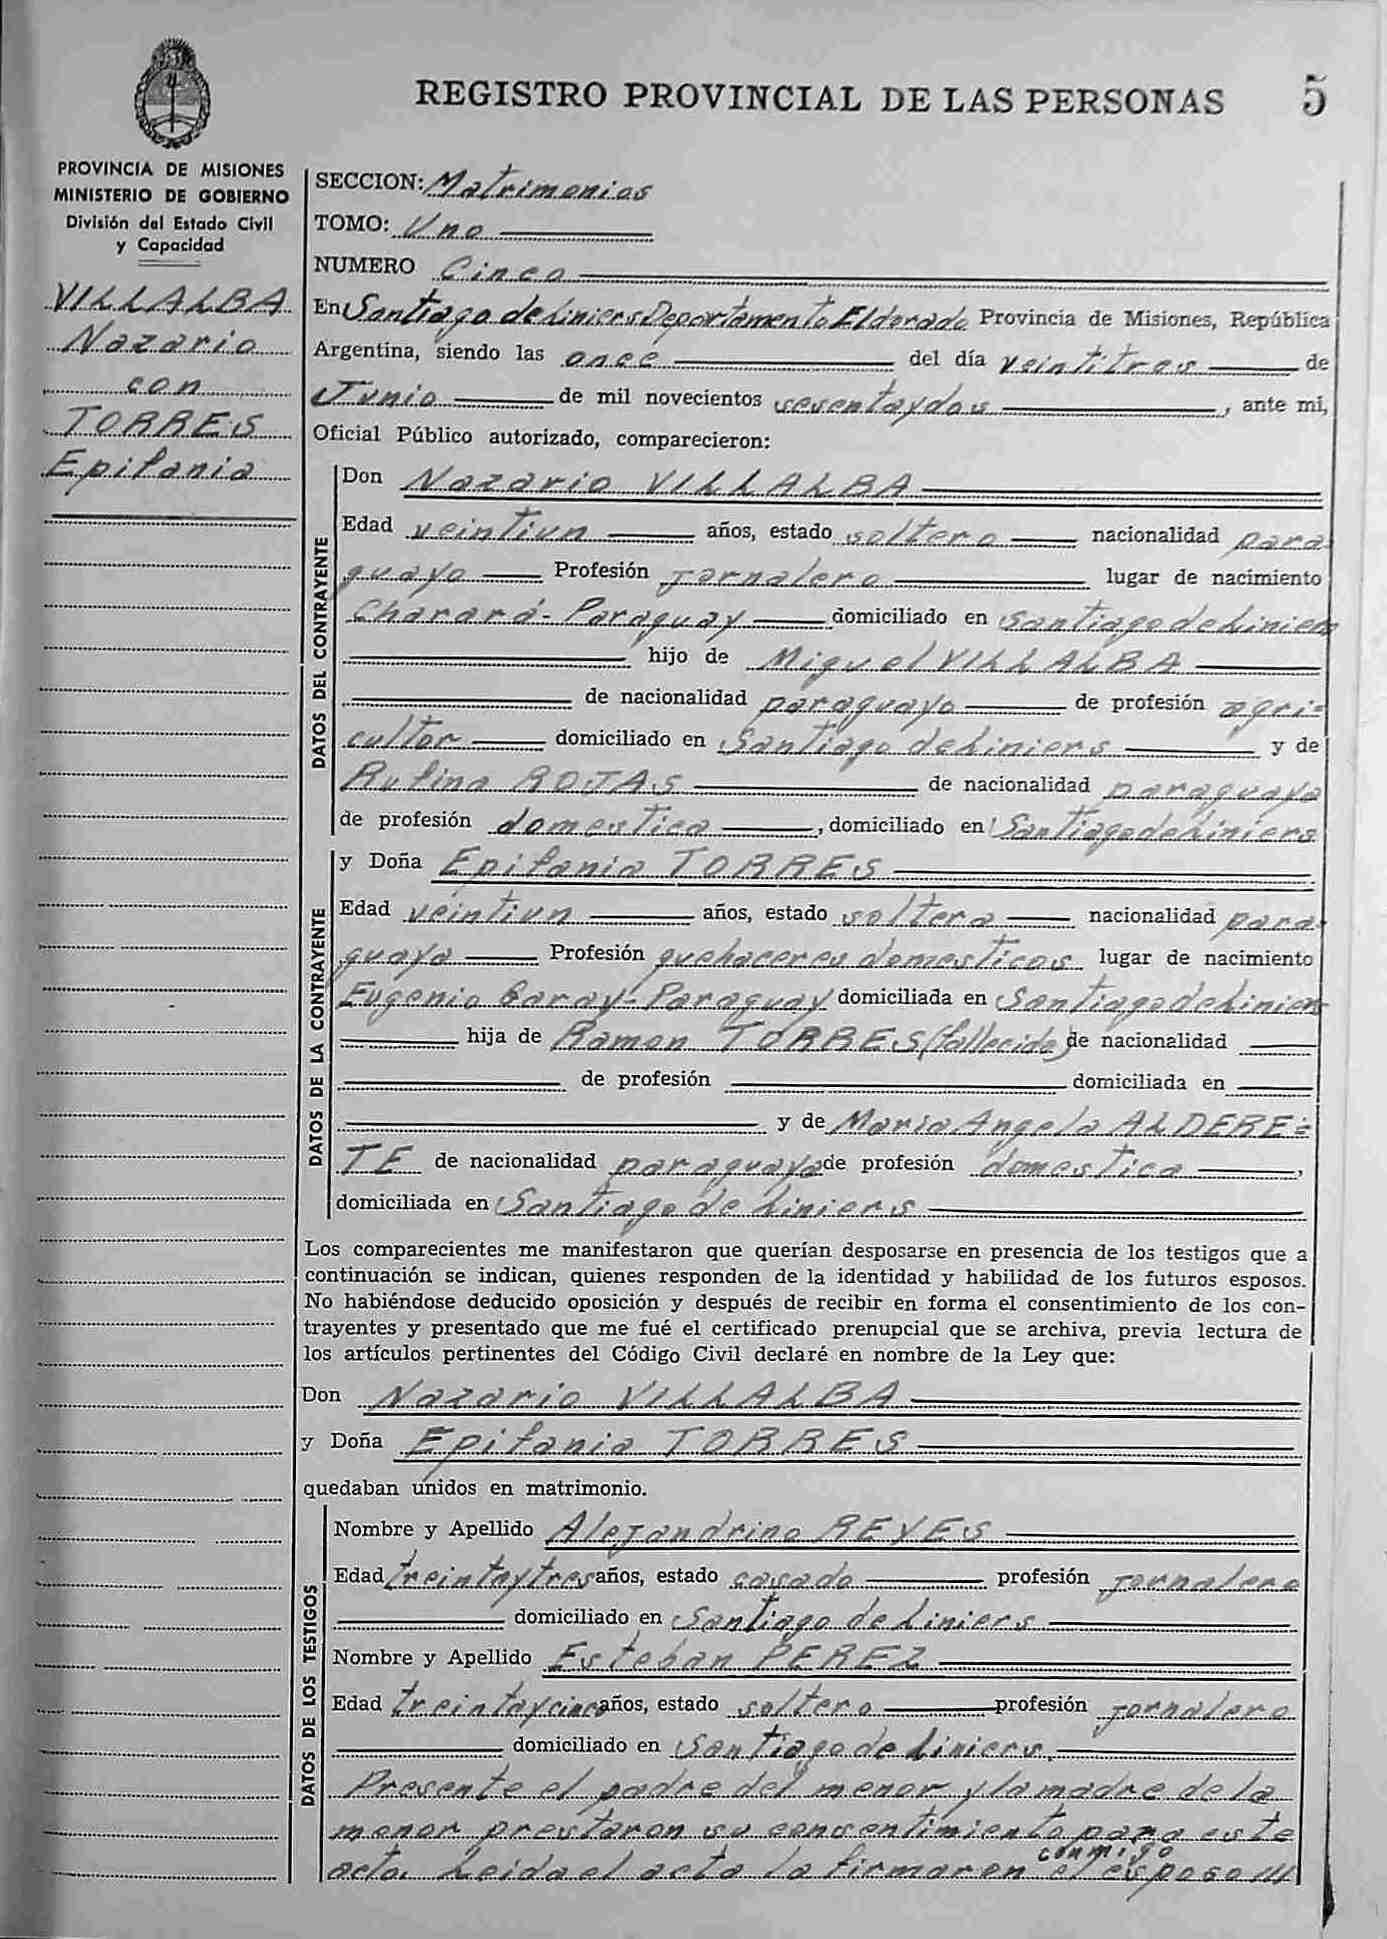 REGISTRO PROVINCIAL DE LAS PERSONAS 5
PROVINCIA DE MISIONES
MINISTERIO DE GOBIERNO
División del Estado Civil
y Capacidad
VILLALBA
Nazario
con
TORRES
Epifania
SECCION: Matrimonios
TOMO: Uno
NUMERO Cinco
En Santiago de Liniers Departamento Eldorado Provincia de Misiones, República
Argentina, siendo las once del día veintitres de
Junio de mil novecientos sesentaydos, ante mí,
Oficial Público autorizado, comparecieron:
DATOS DEL CONTRAYENTE
Don Nazario VILLALBA
Edad veintiun años, estado soltero nacionalidad para-
guayo Profesión jornalero lugar de nacimiento
Charará-Paraguay domiciliado en Santiago de Liniers
hijo de Miguel VILLALBA
de nacionalidad paraguayo de profesión agri=
cultor domiciliado en Santiago de Liniers y de
Rufina ROJAS de nacionalidad paraguaya
de profesión domestica, domiciliado en Santiago de Liniers
DATOS DE LA CONTRAYENTE
y Doña Epifania TORRES
Edad veintiun años, estado soltera nacionalidad para-
guaya Profesión quehaceres domesticos lugar de nacimiento
Eugenio Garay-Paraguay domiciliada en Santiago de Liniers
hija de Ramon TORRES (fallecido) de nacionalidad
de profesión domiciliada en
y de Maria Angela ALDERE=
TE de nacionalidad paraguaya de profesión domestica,
domiciliada en Santiago de Liniers
Los comparecientes me manifestaron que querían desposarse en presencia de los testigos que a
continuación se indican, quienes responden de la identidad y habilidad de los futuros esposos.
No habiéndose deducido oposición y después de recibir en forma el consentimiento de los con-
trayentes y presentado que me fué el certificado prenupcial que se archiva, previa lectura de
los artículos pertinentes del Código Civil declaré en nombre de la Ley que:
Don Nazario VILLALBA
y Doña Epifania TORRES
quedaban unidos en matrimonio.
DATOS DE LOS TESTIGOS
Nombre y Apellido Alejandrino REYES
Edad treintaytres años, estado casado profesión jornalero
domiciliado en Santiago de Liniers
Nombre y Apellido Esteban PEREZ
Edad treintaycinco años, estado soltero profesión jornalero
domiciliado en Santiago de Liniers.
Presente el padre del menor y la madre de la
menor prestaron su consentimiento para este
conmigo
acto. Leida el acta la firmaron el esposo ///